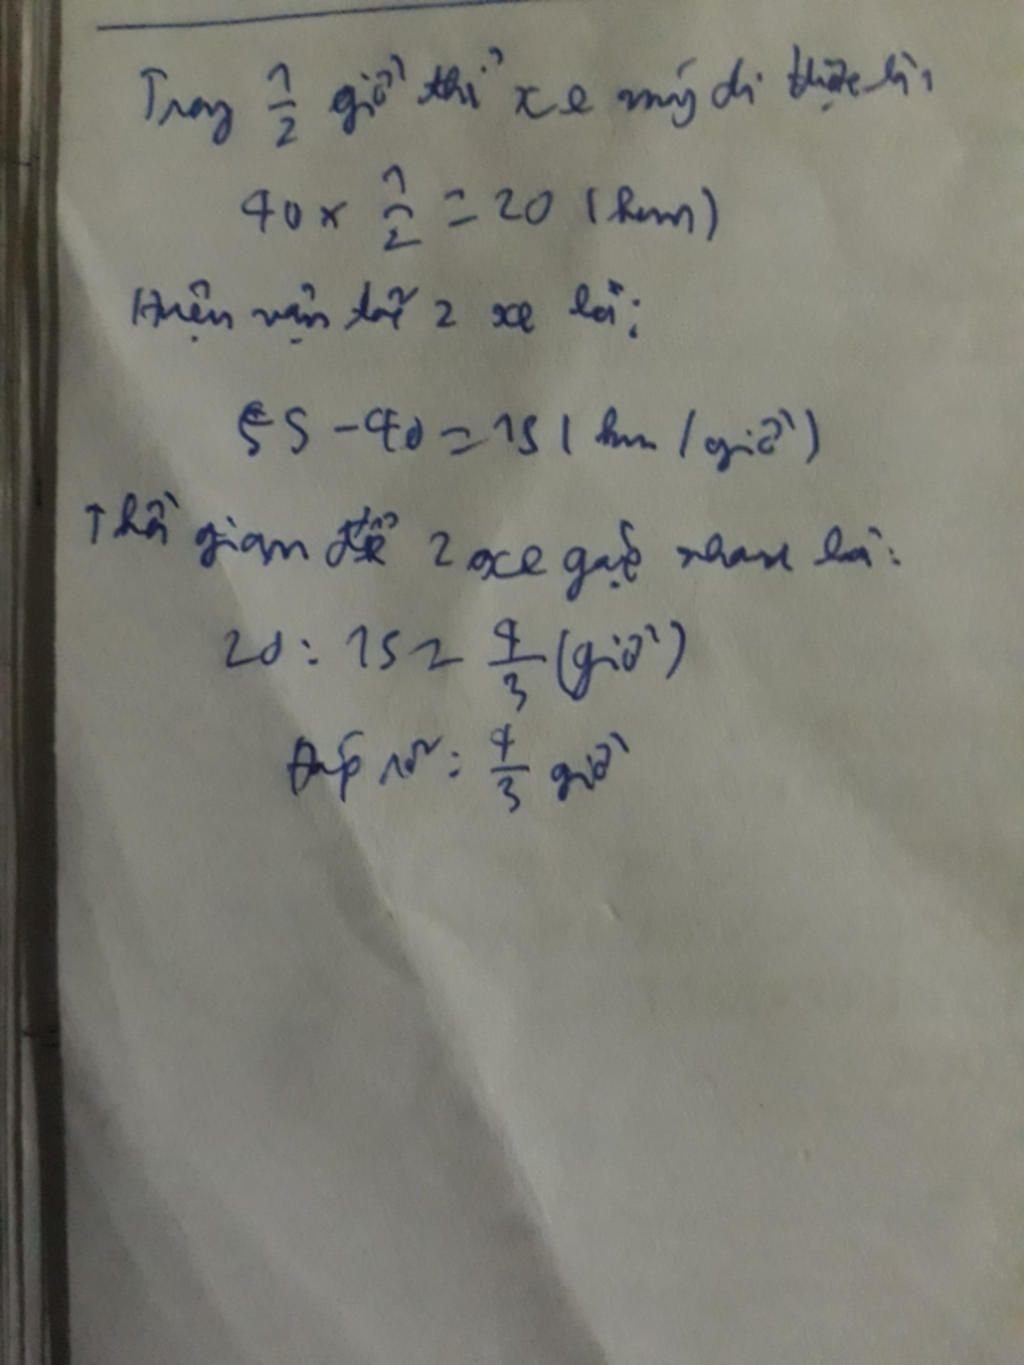 Trong 1/2 giờ thì xe máy đi được là:
40 x 1/2 = 20 (km)
Hiệu vận tốc 2 xe là:
55 - 40 = 15 (km/giờ)
Thời gian để 2 xe gặp nhau là:
20 : 15 = 4/3 (giờ)
Đáp số: 4/3 giờ